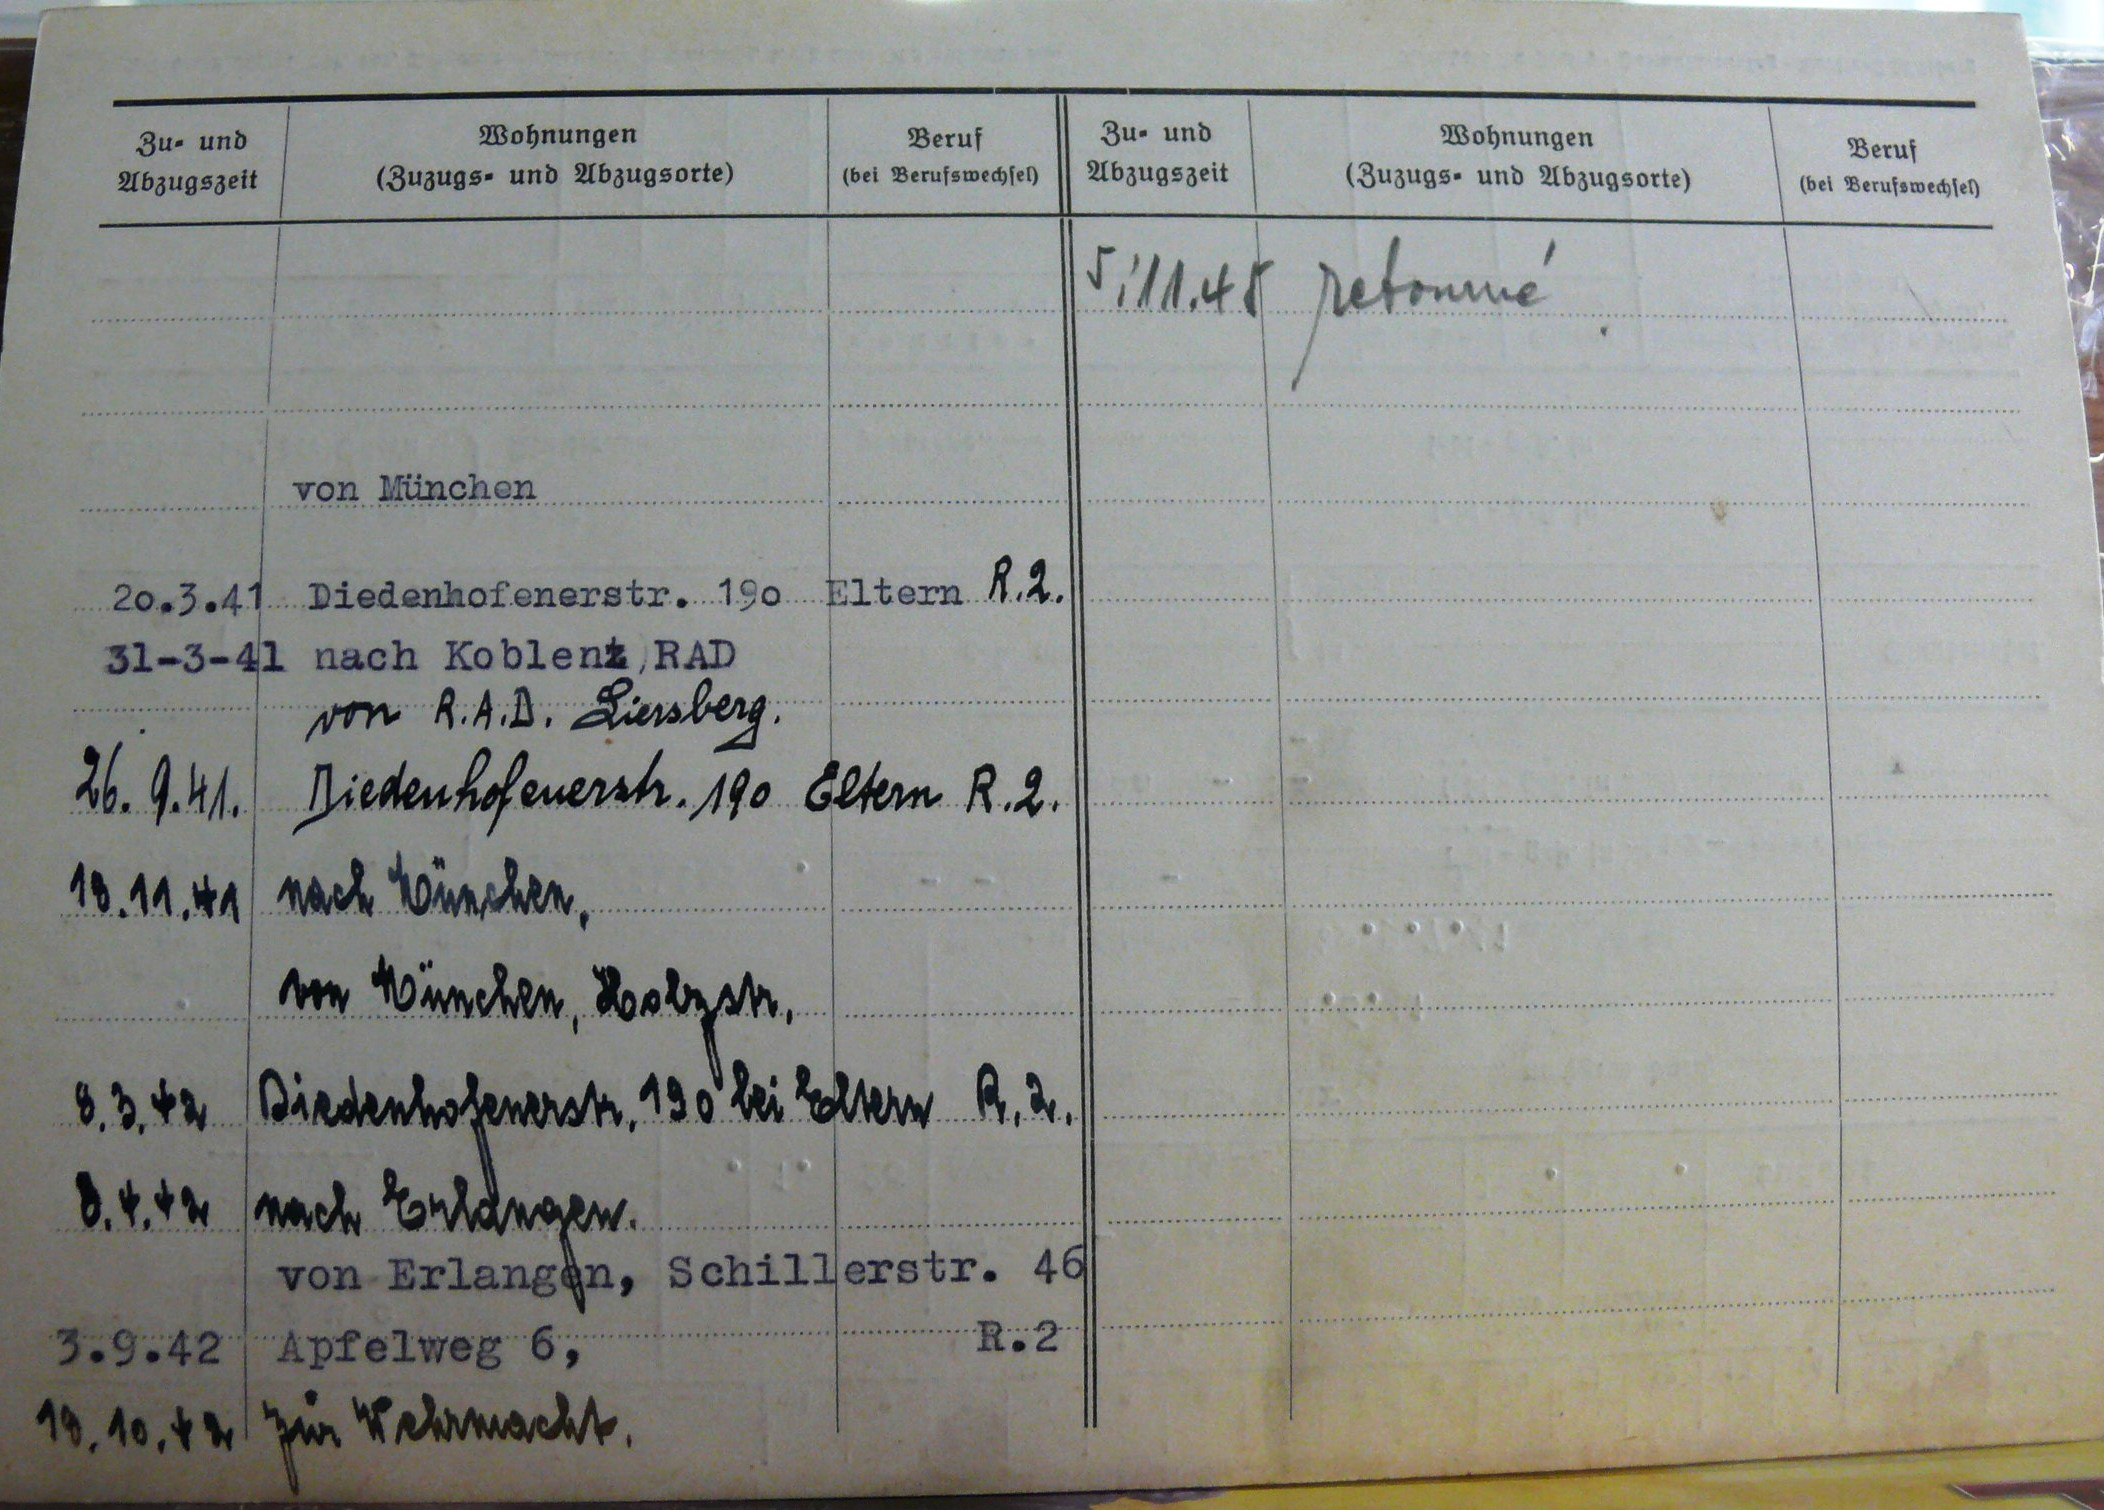 Zu- und Abzugszeit
Wohnungen (Zuzugs- und Abzugsorte)
Beruf (bei Berufswechsel)
Zu- und Abzugszeit
Wohnungen (Zuzugs- und Abzugsorte)
Beruf (bei Berufswechsel)
von München
20.3.41 Diedenhofenerstr. 190 Eltern R.2.
31-3-41 nach Koblenz, RAD
von R.A.D. Liersberg.
26.9.41. Diedenhofenerstr. 190 Eltern R.2.
18.11.41 nach München,
von München, Holzstr.
8.3.42 Diedenhofenerstr. 190 bei Eltern R.2.
8.4.42 nach Erlangen.
von Erlangen, Schillerstr. 46
3.9.42 Apfelweg 6, R.2
18.10.42 zur Wehrmacht.
5.11.45 retourné